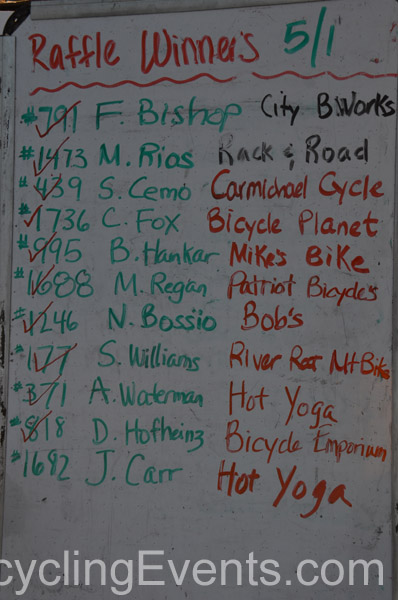 Raffle Winner's 5/1
#791 F. Bishop City B.Works
#1473 M. Rios Rack & Road
#439 S. Cemo Carmichael Cycle
#1736 C. Fox Bicycle Planet
#995 B. Hankar Mike's Bike
#1688 M. Regan Patriot Bicycle's
#1246 N. Bossio Bob's
#177 S. Williams River Rat Mt Bike
#371 A. Waterman Hot Yoga
#818 D. Hofheinz Bicycle Emporium
#1692 J. Carr Hot Yoga
cyclingEvents.com